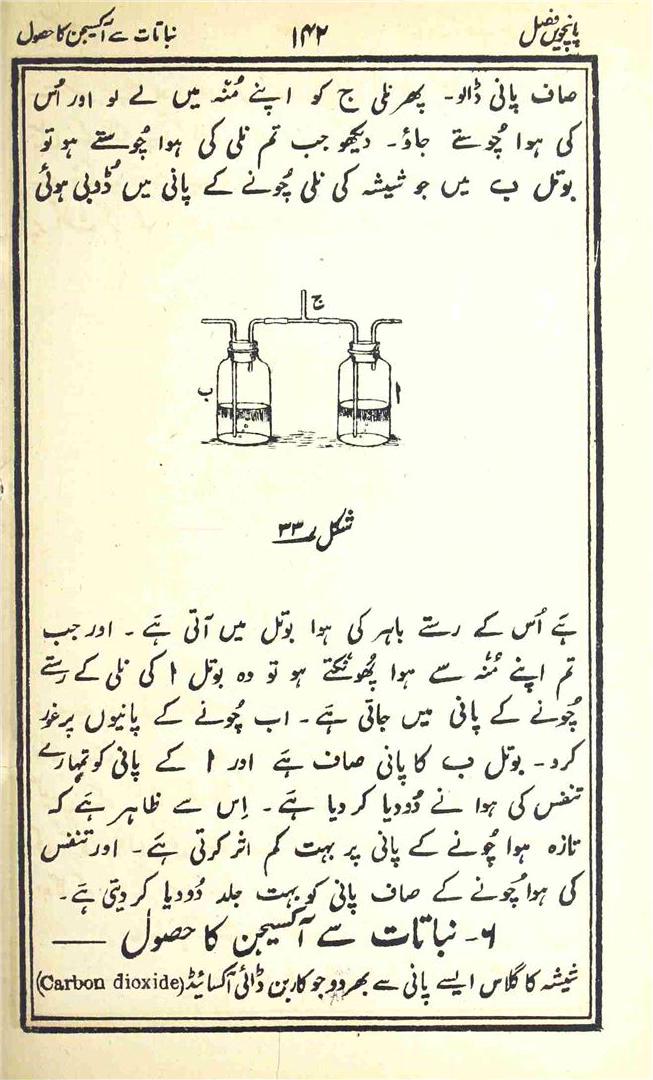 پانچویں فصل
۱۴۲
نباتات سے آکسیجن کا حصول
صاف پانی ڈالو۔ پھر نلی ج کو اپنے مُنّہ میں لے لو اور اُس
کی ہوا چُوستے جاؤ۔ دیکھو جب تم نلی کی ہوا چُوستے ہو تو
بوتل ب میں جو شیشہ کی نلی چُونے کے پانی میں ڈُوبی ہوئی
ج
ب
ا
شکل ۳۳
ہَے اُس کے رستے باہر کی ہوا بوتل میں آتی ہَے۔ اور جب
تم اپنے مُنّہ سے ہوا پُھونکتے ہو تو وہ بوتل ا کی نلی کے رستے
چُونے کے پانی میں جاتی ہَے۔ اب چُونے کے پانیوں پر غور
کرو۔ بوتل ب کا پانی صاف ہَے اور ا کے پانی کو تمہارے
تنفس کی ہوا نے دُودیا کر دیا ہَے۔ اِس سے ظاہر ہَے کہ
تازہ ہوا چُونے کے پانی پر بہت کم اثر کرتی ہَے۔ اور تنفس
کی ہوا چُونے کے صاف پانی کو بہت جلد دُودیا کر دیتی ہَے۔
۶۔ نباتات سے آکسیجن کا حصول ——
شیشہ کا گلاس ایسے پانی سے بھر دو جو کاربن ڈائی آکسائیڈ (Carbon dioxide)